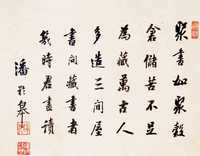 聚書如聚穀
倉儲苦不足
為藏萬古人
多造三間屋
書問藏書者
幾時君盡讀
潘於皋